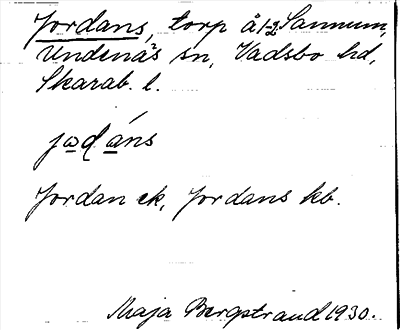 Jordans, torp å 1-2 Sannum,
Undenäs sn, Vadsbo hd,
Skarab. l.
jɷɖáns
Jordan ek, Jordans kb.
Maja Bergstrand 1930.